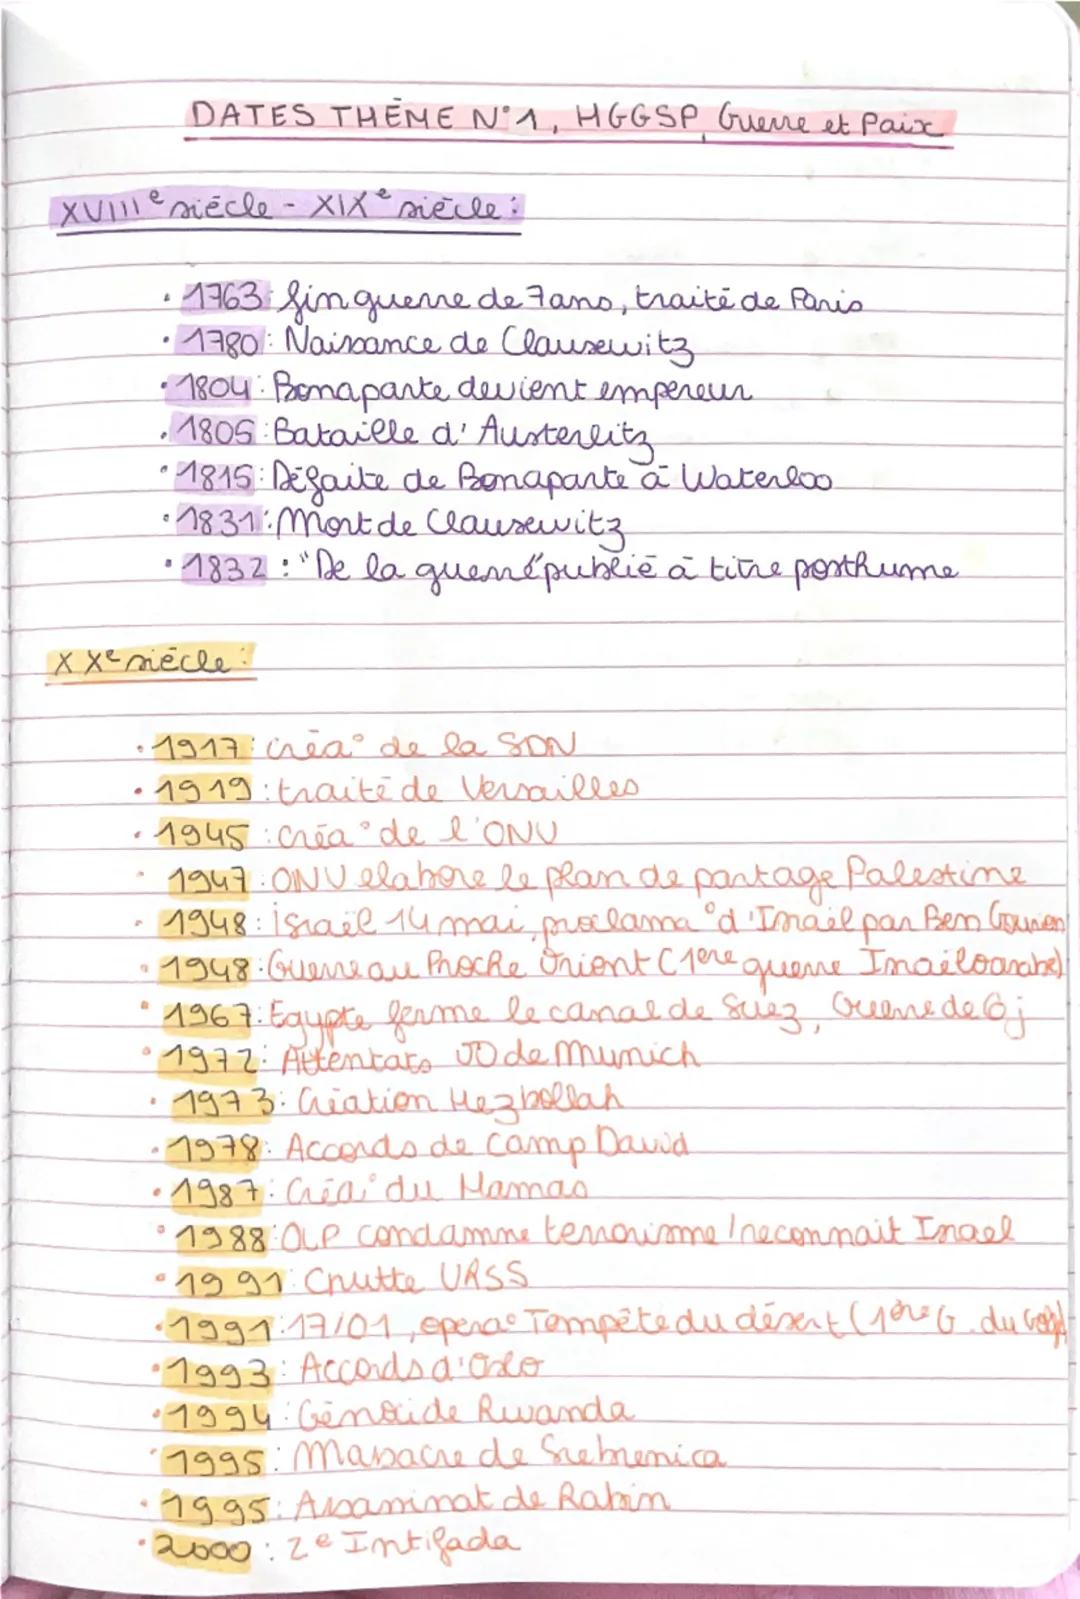 DATES THÈME N°1, HGGSP, Guerre et Paix
XVIIIe siècle - XIXe siècle :
• 1763 : fin guerre de 7 ans, traité de Paris
• 1780 : Naissance de Clausewitz
• 1804 : Bonaparte devient empereur
• 1805 : Bataille d'Austerlitz
• 1815 : Défaite de Bonaparte à Waterloo
• 1831 : Mort de Clausewitz
• 1832 : "De la guerre" publié à titre posthume
XXe siècle :
• 1917 : créa° de la SDN
• 1919 : traité de Versailles
• 1945 : créa° de l'ONU
• 1947 : ONU elabore le plan de partage Palestine
• 1948 : israël 14 mai, proclama°d'Israël par Ben Gourion
• 1948 : Guerre au Proche Orient (1ere guerre Israëloarabe)
• 1967 : Egypte ferme le canal de Suez, Guerre de 6j
• 1972 : Attentats JO de Munich
• 1973 : Création Hezbollah
• 1978 : Accords de Camp David
• 1987 : Créa° du Hamas
• 1988 : OLP condamne terrorisme / reconnait Israel
• 1991 : Chutte URSS
• 1991 : 17/01, opera° Tempête du désert (1ère G. du Golf)
• 1993 : Accords d'Oslo
• 1994 : Génocide Rwanda
• 1995 : Massacre de Srebrenica
• 1995 : Assassinat de Rabin
• 2000 : 2e Intifada